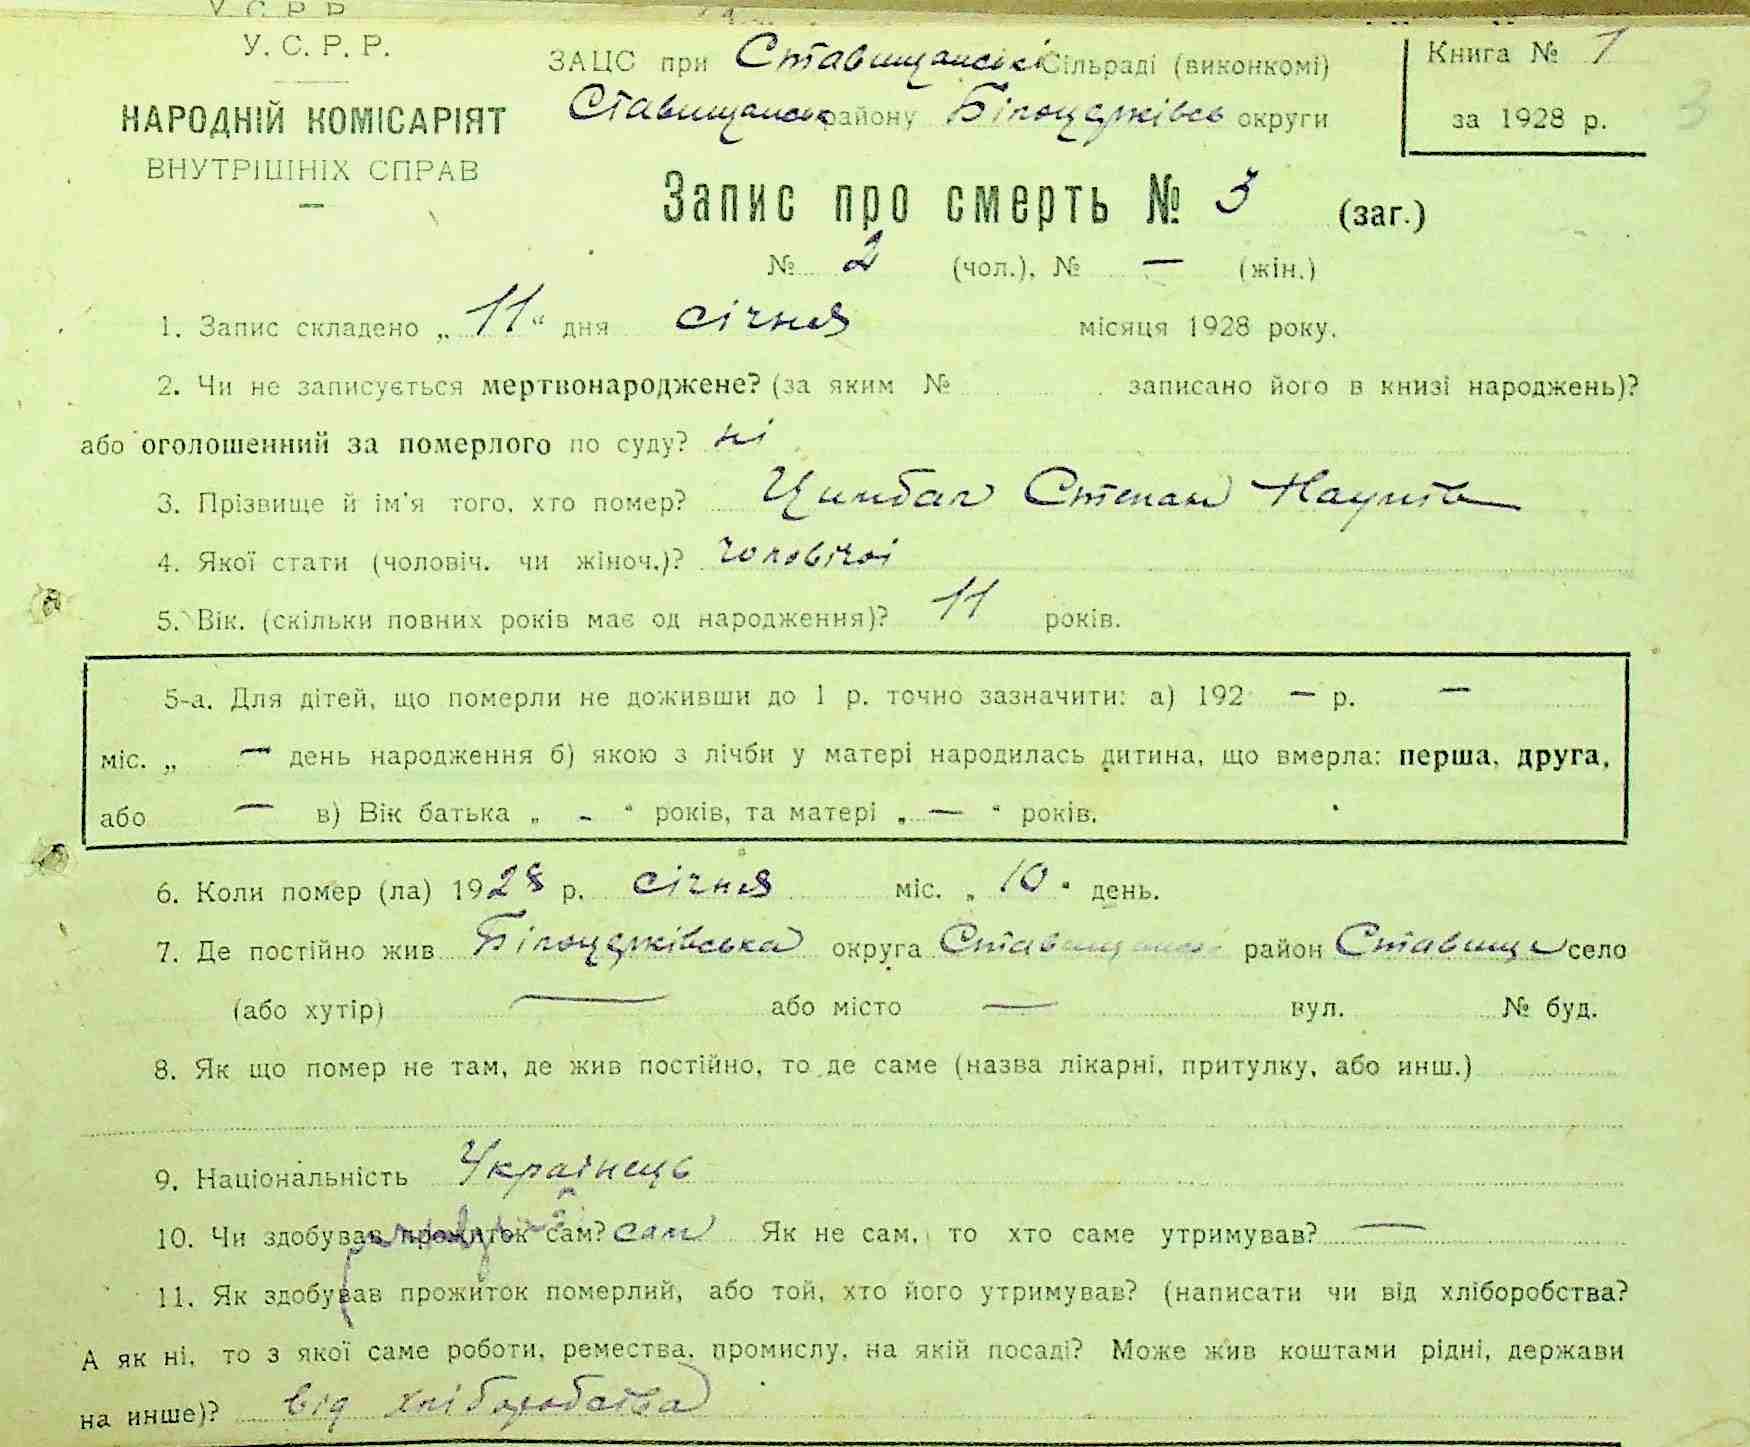 У. С. Р. Р.
У. С. Р. Р.
НАРОДНІЙ КОМІСАРІЯТ
ВНУТРІШНІХ СПРАВ
ЗАЦС при Ставищанські Сільраді (виконкомі)
Ставищанськ району Білоцерківсь округи
Книга № 1
за 1928 р.
3
Запис про смерть № 3 (заг.)
№ 2 (чол.), № — (жін.)
1. Запис складено „ 11 “ дня січня місяця 1928 року.
2. Чи не записується мертвонароджене? (за яким № записано його в книзі народжень)?
або оголошенний за померлого по суду? ні
3. Прізвище й ім'я того, хто помер? Цимбал Степан Наумів
4. Якої стати (чоловіч. чи жіноч.)? чоловічої
5. Вік. (скільки повних років має од народження)? 11 років.
5-а. Для дітей, що померли не доживши до 1 р. точно зазначити: а) 192 — р. —
міс. „ — день народження б) якою з лічби у матері народилась дитина, що вмерла: перша, друга,
або — в) Вік батька „ - “ років, та матері „ — “ років.
6. Коли помер (ла) 1928 р. січня міс. „ 10 “ день.
7. Де постійно жив Білоцерківська округа Ставищанськ район Ставище село
(або хутір) — або місто — вул. № буд.
8. Як що помер не там, де жив постійно, то де саме (назва лікарні, притулку, або инш.)
9. Національність Українець
10. Чи здобував прожиток сам? сам Як не сам, то хто саме утримував? —
11. Як здобував прожиток померлий, або той, хто його утримував? (написати чи від хліборобства?
А як ні, то з якої саме роботи, ремества, промислу, на якій посаді? Може жив коштами рідні, держави
на инше)? від хліборобства